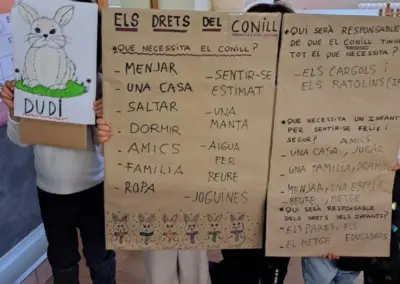 DUDÚ
ELS DRETS DEL CONILL
*QUE NECESSITA EL CONILL?
- MENJAR
- UNA CASA
- SALTAR
- DORMIR
- AMICS
- FAMILIA
- ROPA
- SENTIR-SE
ESTIMAT
- UNA
MANTA
- AIGUA
PER
BEURE
- JOGUINES
*QUI SERÀ RESPONSABLE
DE QUE EL CONILL TINGUI
TOT EL QUE NECESSITA?
- ELS CARGOLS I
ELS RATOLINS
*QUE NECESSITA UN INFANT
PER SENTIR-SE FELIÇ I
SEGUR? AMICS
- UNA CASA, JUGAR
UNA FAMILIA, DORMIR
MENJAR, UNA
BEURE, METGE
*QUI SERÀ RESPONSABLE
DELS DRETS DELS INFANTS?
- ELS PARES,
- EL METGE